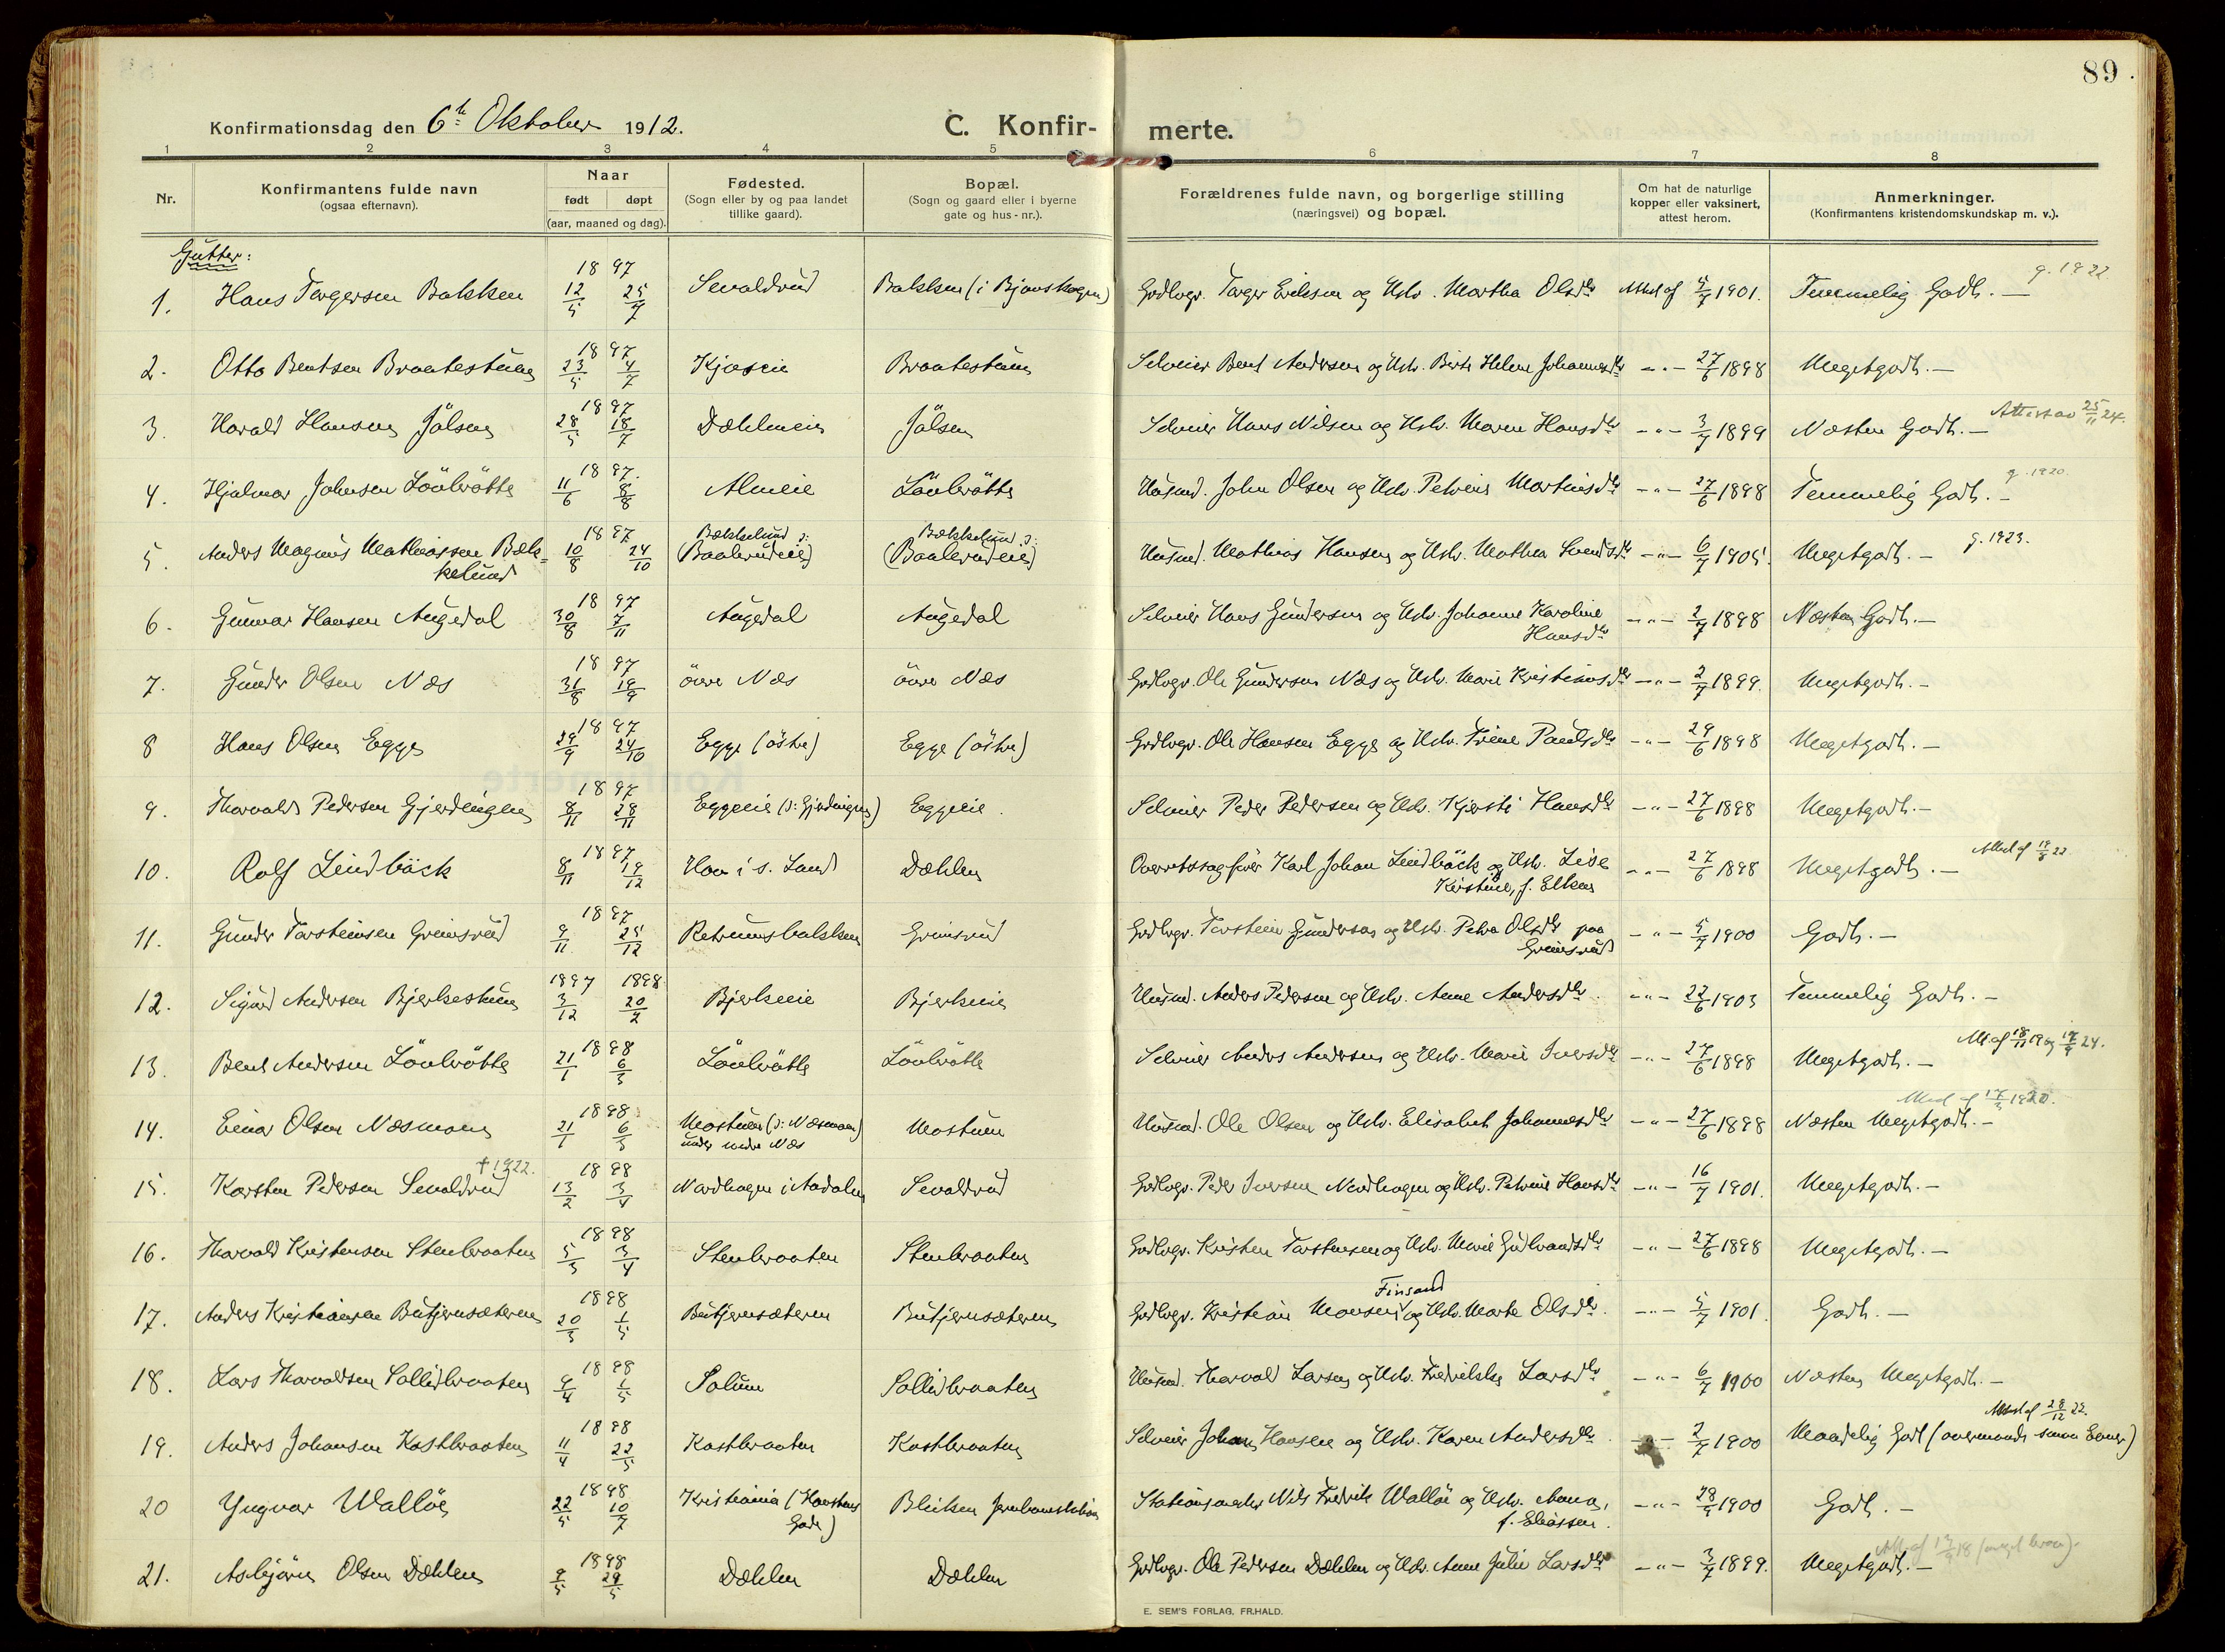 89.
Konfirmationsdag den 6te Oktober 1912.
C. Konfir- merte.
1 2 3 4 5 6 7 8
Nr.
Konfirmantens fulde navn
(ogsaa efternavn).
Naar
født døpt
(aar, maaned og dag).
Fødested.
(Sogn eller by og paa landet
tillike gaard).
Bopæl.
(Sogn og gaard eller i byerne
gate og hus-nr.).
Forældrenes fulde navn, og borgerlige stilling
(næringsvei) og bopæl.
Om hat de naturlige
kopper eller vaksinert,
attest herom.
Anmerkninger.
(Konfirmantens kristendomskundskap m. v.).
Gutter:
g. 1922
1. Hans Torgersen Bakken 1897 12/5 25/7 Sevaldrud Bakken (i Bjønskogen) Grdbrgr. Torger Eriksen og Hstr. Martha Olsdtr Attest af 5/7 1901. Temmelig Godt. —
2. Otto Bentsen Braatestuen 1897 23/5 4/7 Kjøseie Braatestuen Selveier Bent Andersen og Hstr. Berte Helene Johannesdtr —"— 27/6 1898 Megetgodt. —
3. Harald Hansen Jølsen 1897 28/5 18/7 Dæhleneie Jølsen Selveier Hans Nilsen og Hstr. Maren Hansdtr —"— 3/7 1899 Næsten Godt. — Attest av 25/11 24.
4. Hjalmar Johnsen Lövbråtte 1897. 11/6 8/8 Almeie Lövbråtte Husmd. John Olsen og Hstr. Petrine Martinsdtr —"— 27/6 1898 Temmelig Godt. — g. 1920.
5. Anders Magnus Mathiassen Bæk-
kelund 1897 10/8 24/10 Bækkelund ɔ:
(Baalerudeie) Bækkelund ɔ:
(Baalerudeie) Husmd. Mathias Hansen og Hstr. Mathea Svendsdtr —"— 6/7 1905. Megetgodt. — g. 1923.
6. Gunnar Hansen Augedal 1897 30/8 7/11 Augedal Augedal Selveier Hans Gundersen og Hstr. Johanne Karoline
Hansdtr —"— 2/7 1898 Næsten Godt. —
7. Gunder Olsen Næs 1897 31/8 19/9 övre Næs övre Næs Grdbrgr. Ole Gundersen Næs og Hstr. Marie Kristiansdtr —"— 2/7 1899. Megetgodt. —
8 Hans Olsen Egge 1897 29/9 24/10 Egge (östre) Egge (östre) Grdbrgr. Ole Hansen Egge og Hstr. Trine Paulsdtr —"— 29/6 1898 Megetgodt. —
9. Thorvald Pedersen Gjerdingen 1897 8/11 28/11 Eggeeie (ɔ: Gjerdingen) Eggeeie. Selveier Peder Pedersen og Hstr. Kjersti Hansdtr —"— 27/6 1898 Megetgodt. —
10. Rolf Lindbäck 1897 8/11 19/12 Hov i s. Land Dæhlen Overretssagfører Karl Johan Lindbäck og Hstr. Lise
Kirstine, f. Elken —"— 27/6 1898 Megetgodt. — Attest af 19/8 22.
11. Gunder Torsteinsen Grimsrud 1897 9/11 25/12 Retrumsbakken Grimsrud Grdbrgr. Torstein Gundersen og Hstr. Petra Olsdtr paa
Grimsrud —"— 5/7 1900 Godt. —
12. Sigurd Andersen Bjerkestuen 1897 3/12 1898. 20/2 Bjerkeeie Bjerkeeie Husmd. Anders Pedersen og Hstr. Anne Andersdtr. —"— 22/6 1903 Temmelig Godt. —
13. Bent Andersen Lövbråtte 1898 21/1 6/3 Lövbråtte Lövbråtte Selveier Anders Andersen og Hstr. Marie Iversdtr —"— 27/6 1898 Megetgodt. — Att. af 18/11 19 og 17/9 24.
14. Einar Olsen Næsmoen 1898. 21/1 6/3 Mostuen (ɔ: Næsmoen)
under nedre Næs Mostuen Husmd. Ole Olsen og Hstr. Elisabet Johannesdtr —"— 27/6 1898 Næsten Megetgodt. — Attest af 17/3 1920.
15. Karsten Pedersen Sevaldrud † 1922. 1898 13/2 3/4 Nordhagen i Aadalen Sevaldrud Grdbrgr. Peder Iversen Nordhagen og Hstr. Petrine Hansdtr —"— 16/7 1901. Megetgodt. —
16. Thorvald Kristensen Stenbraaten 1898 5/3 3/4 Stenbraaten Stenbraaten Grdbrgr. Kristen Torstensen og Hstr. Marie Gulbrandsdtr —"— 27/6 1898 Megetgodt. —
17. Anders Kristiansen Butjernsæteren 1898 20/3 1/5 Butjernsæteren Butjernsæteren Grdbrgr. Kristian Monsen Finsand og Hstr. Marte Olsdtr. —"— 5/7 1901. Godt. —
18. Lars Thorvaldsen Sollidbraaten 1898 9/4 1/5 Solum Sollidbraaten Husmd. Thorvald Larsen og Hstr. Fredrikke Larsdtr —"— 6/7 1900 Næsten Megetgodt. —
19. Anders Johansen Kastbraaten 1898 11/4 22/5 Kastbraaten Kastbraaten Selveier Johan Hansen og Hstr. Karen Andersdtr. —"— 2/7 1900 Maadelig Godt (overmaade smaa Evner) Attest af 28/12 22.
20 Yngvar Walløe 1898 22/5 10/7 Kristiania (
Gade) Bleiken Jernbanestation Stationsmester Nils Fredrik Walløe og Hstr. Anna,
f. Eliassen. —"— 28/9 1900 Godt. —
21. Asbjørn Olsen Dæhlen 1898 9/5 29/5 Dæhlen Dæhlen Grdbrgr. Ole Pedersen Dæhlen og Hstr. Anne Julie Larsdtr —"— 3/7 1899. Megetgodt. — Att. af 13/9 18
E. SEM'S FORLAG, FR.HALD.